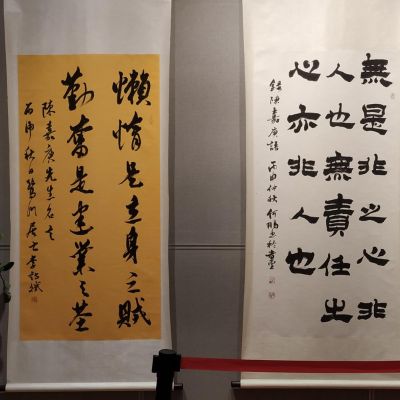 無是非之心非
人也無責任之
心亦非人也
錄陳嘉庚語 丙申仲秋
懶惰是立身之賊
勤奮是建業之基
陳嘉庚先生名言
丙申秋日